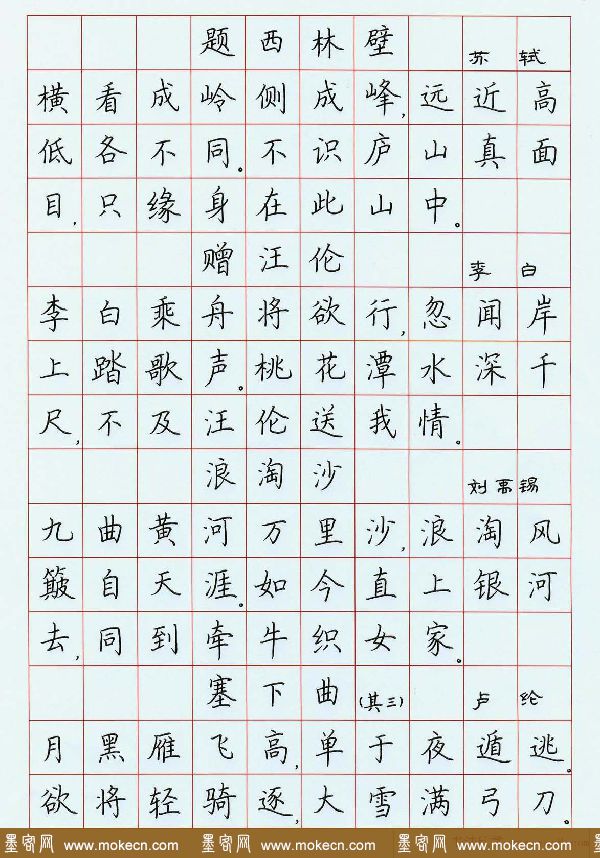 题西林壁 苏轼
横看成岭侧成峰,远近高
低各不同。不识庐山真面
目,只缘身在此山中。
赠汪伦 李白
李白乘舟将欲行,忽闻岸
上踏歌声。桃花潭水深千
尺,不及汪伦送我情。
浪淘沙 刘禹锡
九曲黄河万里沙,浪淘风
簸自天涯。如今直上银河
去,同到牵牛织女家。
塞下曲(其三) 卢纶
月黑雁飞高,单于夜遁逃。
欲将轻骑逐,大雪满弓刀。
墨客网 www.mokecn.com 墨客网 www.mokecn.com 墨客网 www.mokecn.com